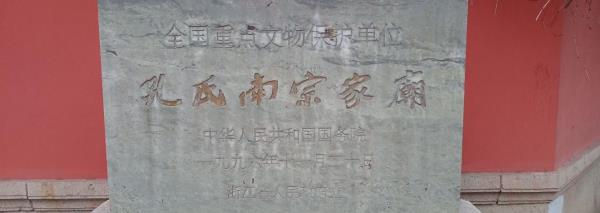 全国重点文物保护单位
孔氏南宗家庙
中华人民共和国国务院
一九九六年十一月二十日
浙江省人民政府立